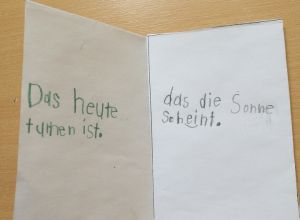 Das heute
turnen ist.
das die Sonne
scheint.